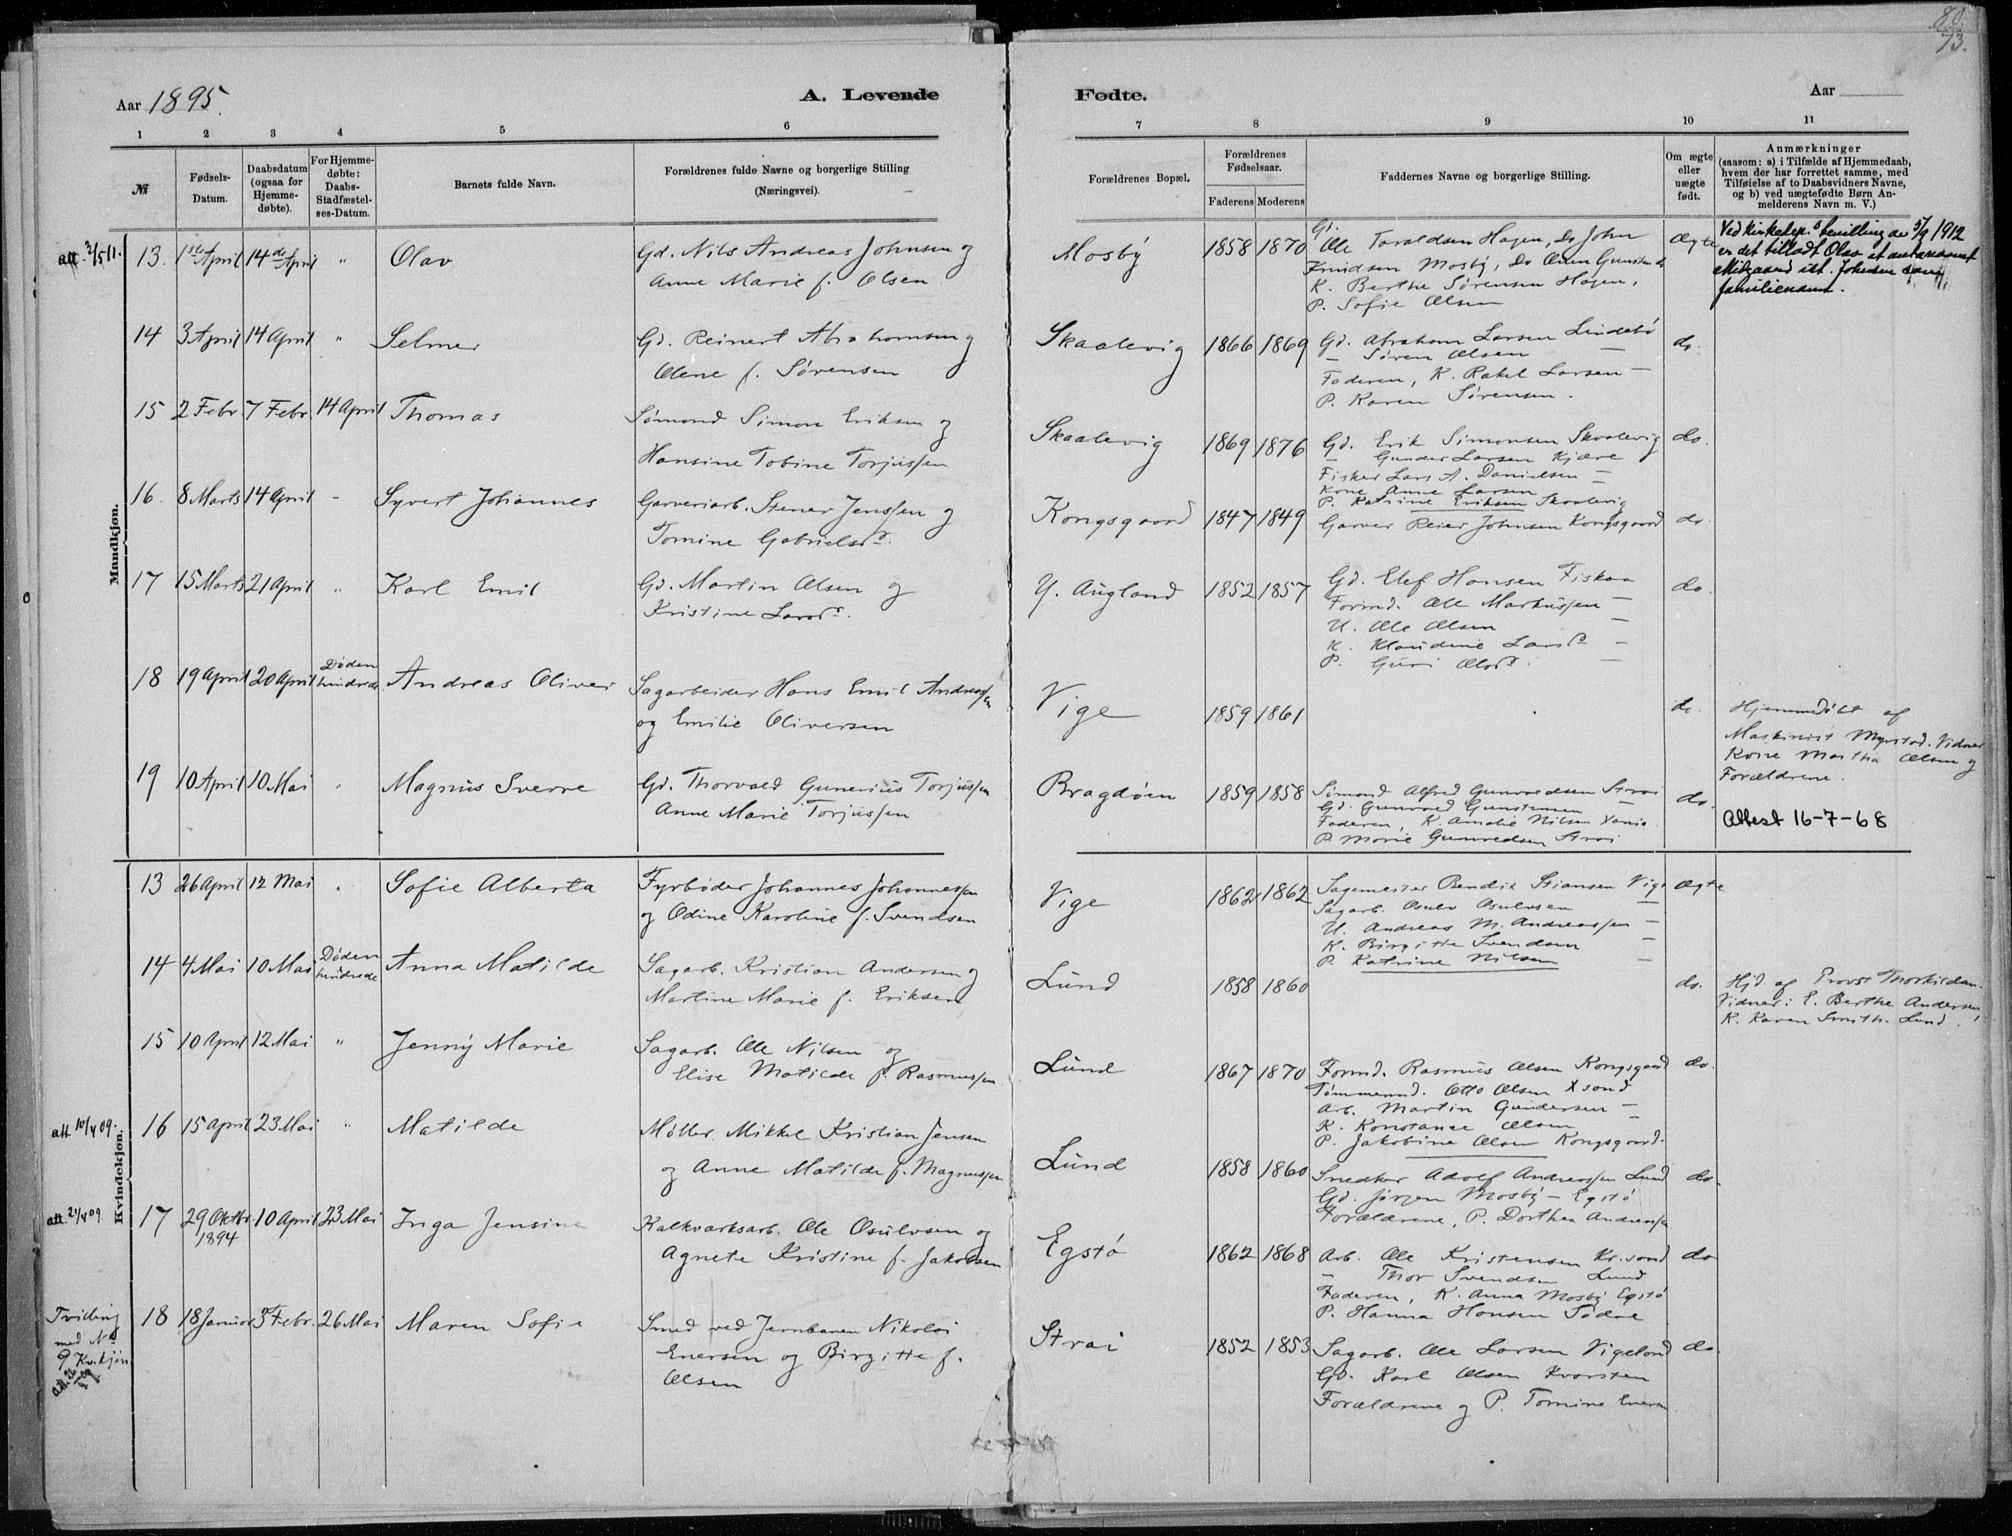 80.
73.
Aar 1895.
A. Levende
Fødte.
Aar
1 2 3 4 5 6
7 8 9 10 11
№
Fødsels-
Datum.
Daabsdatum
(ogsaa for
Hjemme-
døbte).
For Hjemme-
døbte:
Daabs-
Stadfæstel-
ses-Datum.
Barnets fulde Navn.
Forældrenes fulde Navne og borgerlige Stilling
(Næringsvei).
Forældrenes Bopæl.
Forældrenes
Fødselsaar.
Faderens Moderens
Faddernes Navne og borgerlige Stilling.
Om ægte
eller
uægte
født.
Anmærkninger
(saasom: a) i Tilfælde af Hjemmedaab,
hvem der har forrettet samme, med
Tilføielse af to Daabsvidners Navne,
og b) ved uægtefødte Børn An-
melderens Navn m. V.)
Mandkjøn.
att. 3/5 11.
13. 1ste April 14de April " Olav
Gd. Nils Andreas Johnsen og
Anne Marie f. Olsen
Mosby 1858 1870
Gd.
Ole Taraldsen Hagen, do John
Knudsen Mosby, do Gunstein
K. Berthe Sørensen Hagen,
P. Sofie Olsen
Ægte
Ved kirkedep.s bevilling av 5/9 1912
er det tilladt Olav at anta navnet
Midgaard ist. Johnsen som
familienavn.
14 3 April 14 April " Selmer
Gd. Reinert Abrahamsen og
Olene f. Sørensen
Skaalevig 1866 1869
Gd. Abraham Larsen Lindebø
— Søren Olsen —
Faderen, K. Rakel Larsen —
P. Karen Sørensen.
do.
15 2 Febr. 7 Febr. 14 April Thomas
Sømand Simon Eriksen og
Hansine Tobine Torjussen
Skaalevig 1869 1876
Gd. Erik Simonsen Skaalevig
— Gunder Larsen Kjære
Fisker Lars A. Danielsen —
Kone Anne Larsen
P. Katrine Eriksen Skaalevig
do.
16. 8 Marts 14 April - Syvert Johannes
Garveriarb. Stener Jenssen og
Tomine Gabrielsd.
Kongsgaard 1847 1849
Garver Reier Johnsen Kongsgaard
do
17 15 Marts 21 April " Karl Emil
Gd. Martin Olsen og
Kristine Larsd.
Y. Augland 1852 1857
Gd. Elef Hansen Fiskaa
Formd. Ole Markussen —
U. Ole Olsen —
K. Klaudine Larsd. —
P. Guri Olsd. —
do.
18 19 April 20 April Døden
hindrede
Andreas Oliver
Sagarbeider Hans Emil Andreassen
og Emilie Oliversen
Vige 1859 1861
do.
Hjemmedøbt af
Maskinist Myrstad. Vidner
Kone Martha Olsen og
Forældrene.
19 10 April 10 Mai " Magnus Sverre
Gd. Thorvald Gunerius Torjussen
Anne Marie Torjussen
Bragdøen 1859 1858
Sømand Alfred Gunvaldsen Strai
Gd. Gunvald Gunstensen —
Faderen, K. Amalie Nilsen
P. Marie Gunvaldsen Strai
do.
Attest 16-7-68
Kvindekjøn.
13 26 April 12 Mai " Sofie Alberta
Fyrbøder Johannes Johannessen
og Odine Karoline f. Svendsen
Vige 1862 1862
Sagmester Bendik Stiansen Vige
Sagarb. Osulv Osulvsen —
U. Andreas M. Andreassen —
K. Birgitte Svendsen —
P. Katrine Nilsen —
Ægte
14 4 Mai 10 Mai Døden
hindrede
Anna Matilde
Sagarb. Kristian Andersen og
Martine Marie f. Eriksen
Lund 1858 1860
do.
Hjd. af Provst Thorkildsen.
Vidner: E. Berthe Andersen,
K. Karen Smith. Lund.
15 10 April 12 Mai " Jenny Marie
Sagarb. Ole Nilsen og
Elise Matilde f. Rasmussen
Lund 1867 1870
Formd. Rasmus Olsen Kongsgaard
Tømmermd. Otto Olsen Xsand
Arb. Martin Gundersen —
K. Konstance Olsen —
P. Jakobine Olsen Kongsgaard.
do.
att. 10/4 09.
16 15 April 23 Mai " Matilde
Møller Mikkel Kristian Jensen
og Anne Matilde f. Magnussen
Lund 1858 1860
Snedker Adolf Andreassen Lund
Gd. Jørgen Mosby — Egstø
Forældrene, P. Dorthea Andreassen
do.
att. 21/4 09.
17 29 Oktbr.
1894
10 April 23 Mai Inga Jensine
Kalkværksarb. Ole Osulvsen og
Agnete Kristine f. Jakobsen
Egstø 1862 1868
Arb. Ole Kristensen Kr.sand
— Thor Svendsen Lund
Faderen, K. Anna Mosby Egstø
P. Hanna Hansen Sødne
do
Tvilling
med No
9 Kv.kjøn
18 18 Januar 3 Febr. 26 Mai Maren Sofie
Smed ved Jernbanen Nikolai
Enersen og Birgitte f.
Olsen
Strai 1852 1853
Sagarb. Ole Larsen Vigeland
Gd. Karl Olsen Kvarsten
Forældrene og P. Tomine Enersen
do.